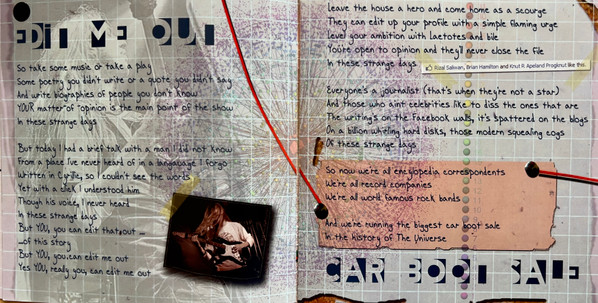 EDiT ME OUT
So take some music or take a play
Some poetry you didn't write or a quote you didn't say
And write biographies of people you don't know
YOUR matter of opinion is the main point of the show
In these strange days
But today I had a brief talk with a man I did not know
From a place I've never heard of in a language I forgo
Written in Cyrillic, so I couldn't see the words
Yet with a click I understood him
Though his voice, I never heard
In these strange days
But YOU, you can edit that out ...
...of this story
But YOU, you can edit me out
Yes YOU, ready you, can edit me out
Leave the house a hero and come home as a scourge
They can edit up your profile with a simple flaming urge
Level your ambition with Lactotes and bile
You're open to opinion and they'll never close the file
In these strange days
Rizal Saliwan, Brian Hamilton and Knut R. Apeland Prognknut like this.
Everyone's a journalist (that's when they're not a star)
And those who aint celebrities like to diss the ones that are
The writing's on the Facebook walls, it's spattered on the blogs
On a billion whirling hard disks, those modern squealing cogs
Of these strange days
So now we're all encyclopedia correspondents
We're all record companies
We're all world famous rock bands
And we're running the biggest car boot sale
In the history of The Universe
CAR BOOT SALE